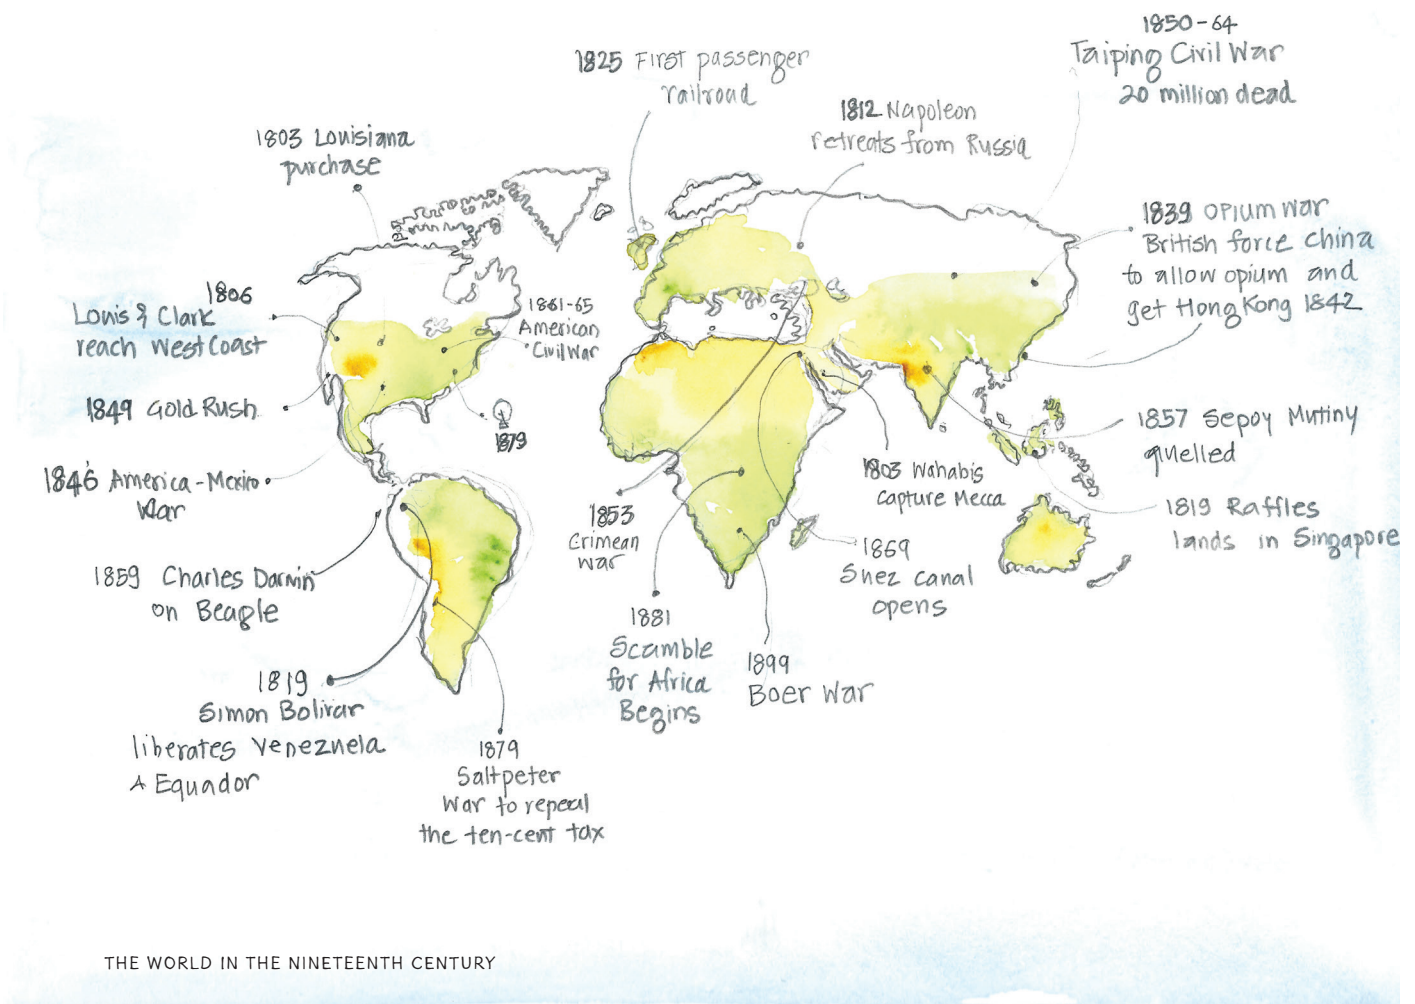 1850-64
Taiping Civil War
20 million dead
1825 First passenger
railroad
1812 Napoleon
retreats from Russia
1803 Louisiana
purchase
1839 opium war
British force China
to allow opium and
get Hong Kong 1842
1806
Louis & Clark
reach West Coast
1861-65
American
Civil War
1849 Gold Rush
1879
1846 America-Mexico
War
1857 Sepoy Mutiny
quelled
1803 Wahabis
capture Mecca
1819 Raffles
lands in Singapore
1853
Crimean
War
1869
Suez canal
opens
1859 Charles Darwin
on Beagle
1881
Scramble
for Africa
Begins
1899
Boer War
1819
Simon Bolivar
liberates Venezuela
& Equador
1879
Saltpeter
War to repeal
the ten-cent tax
THE WORLD IN THE NINETEENTH CENTURY